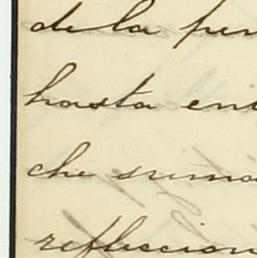 de la pen
hasta ent
che suma
refleccion